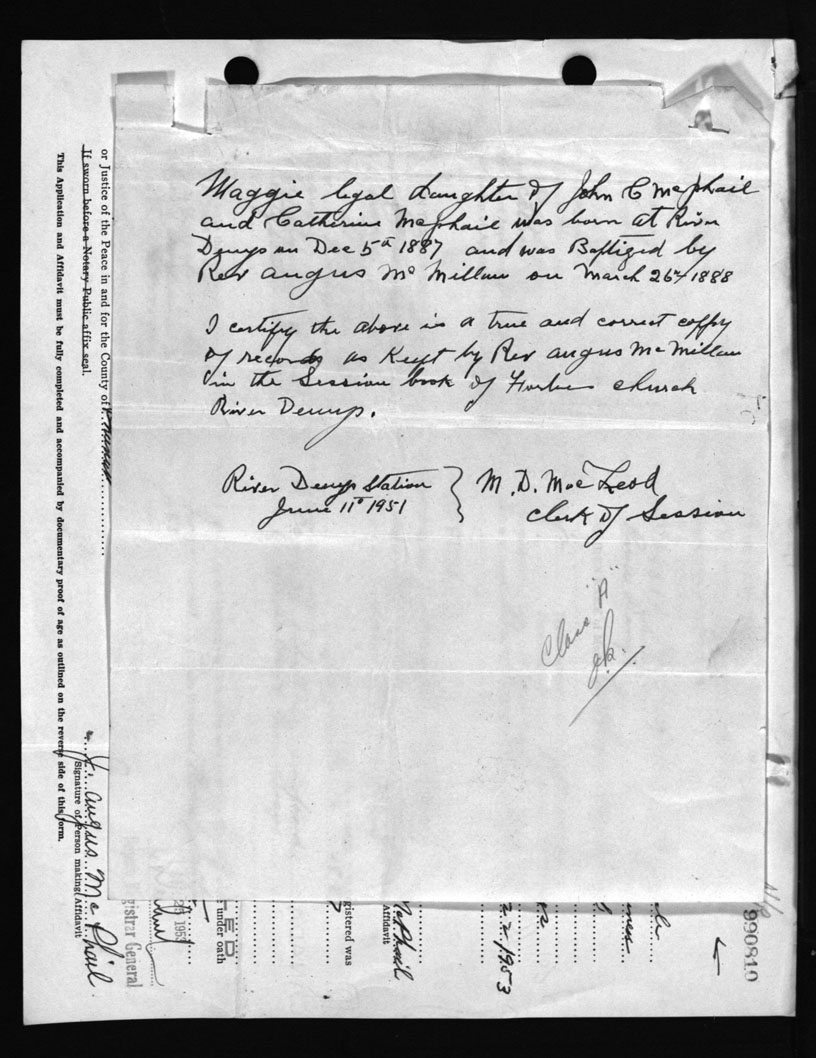 Maggie legal daughter of John C McPhail
and Catherine McPhail was born at River
Denys on Dec 5th 1887 and was Baptized by
Rev Angus Mc Millan on March 26th 1888
I certify the above is a true and correct coppy
of records as Kept by Rev Angus McMillan
in the Session book of Forbes church
River Denys.
River Denys Station
June 11th 1951
M. D. MacLeod
Clerk of Session
Class "A"
or Justice of the Peace in and for the County of
If sworn before a Notary Public affix seal.
This Application and Affidavit must be fully completed and accompanied by documentary proof of age as outlined on the reverse side of this form.
J. Angus McPhail
Signature of Person making Affidavit
Registrar General
LED
under oath
gistered was
McPhail
Affidavit
22 1953
990810